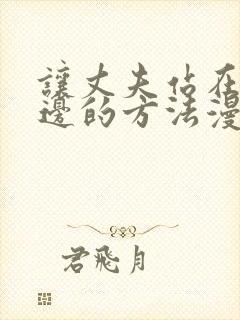 讓丈夫佔在
邊的方法漫
君飛月